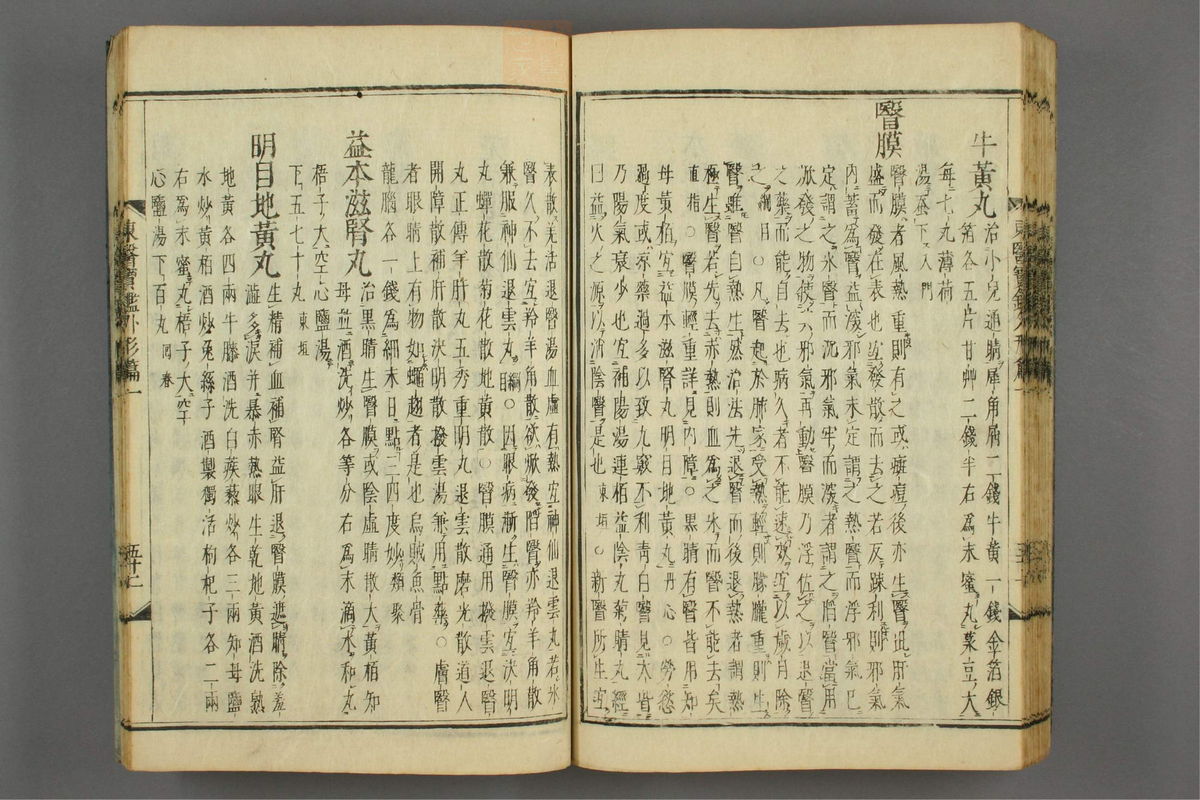 牛黃丸 治小兒通睛犀角屑二錢牛黃一錢金箔銀
箔各五片甘艸二錢半右爲末蜜丸菉豆大
每七丸薄荷
湯呑下 入門
瞖膜 瞖膜者風熱重則有之或癍痘後亦生瞖此肝氣
盛而發在表也宜發散而去之若反踈利則邪氣
內蓄爲瞖益深邪氣未定謂之熱瞖而浮邪氣已
定謂之氷瞖而沉邪氣牢而深者謂之陷瞖當用
焮發之物使其邪氣再動瞖膜乃浮佐之以退瞖
之藥而能自去也病久者不能速效宜以歲月除
之 綱目 ○凡瞖起於肺家受熱輕則朦朧重則生
瞖雖瞖自熱生然治法先退瞖而後退熱者謂熱
極生瞖若先去赤熱則血爲之氷而瞖不能去矣
直指 ○瞖膜輕重詳見內障○黑睛有瞖皆用知
母黃栢 宜益本滋腎丸明目地黃丸 丹心 ○勞慾
過度或凉藥過多以致九竅不利靑白瞖見大眥
乃陽氣衰少也宜補陽湯連栢益陰丸菊睛丸經
曰益火之源以消陰瞖是也 東垣 ○新瞖所生宜
表散羌活退瞖湯血虛有熱宜神仙退雲丸若氷
瞖久不去宜羚羊角散欲焮發陷瞖亦羚羊角散
兼服神仙退雲丸 綱目 ○因眼病漸生瞖膜宜決明
丸蟬花散菊花散地黃散○瞖膜通用撥雲退瞖
丸正傳羊肝丸五秀重明丸退雲散磨光散道人
開障散補肝散決明散撥雲湯兼用點藥○膚瞖
者眼睛上有物如蠅翅者是也烏賊魚骨
龍腦各一錢爲細末日點三四度妙 類聚
益本滋腎丸 治黑睛生瞖膜或陰虛睛散大黃栢知
母並酒洗炒各等分右爲末滴水和丸
梧子大空心鹽湯
下五七十丸 東垣
明目地黃丸 生精補血補腎益肝退瞖膜遮睛除羞
澁多淚幷暴赤熱眼生乾地黃酒洗熟
地黃各四兩牛膝酒洗白蒺藜炒各三兩知母鹽
水炒黃栢酒炒兔絲子酒製獨活枸杞子各二兩
右爲末蜜丸梧子大空
心鹽湯下百丸 回春
東醫寶鑑外形篇一
五十二